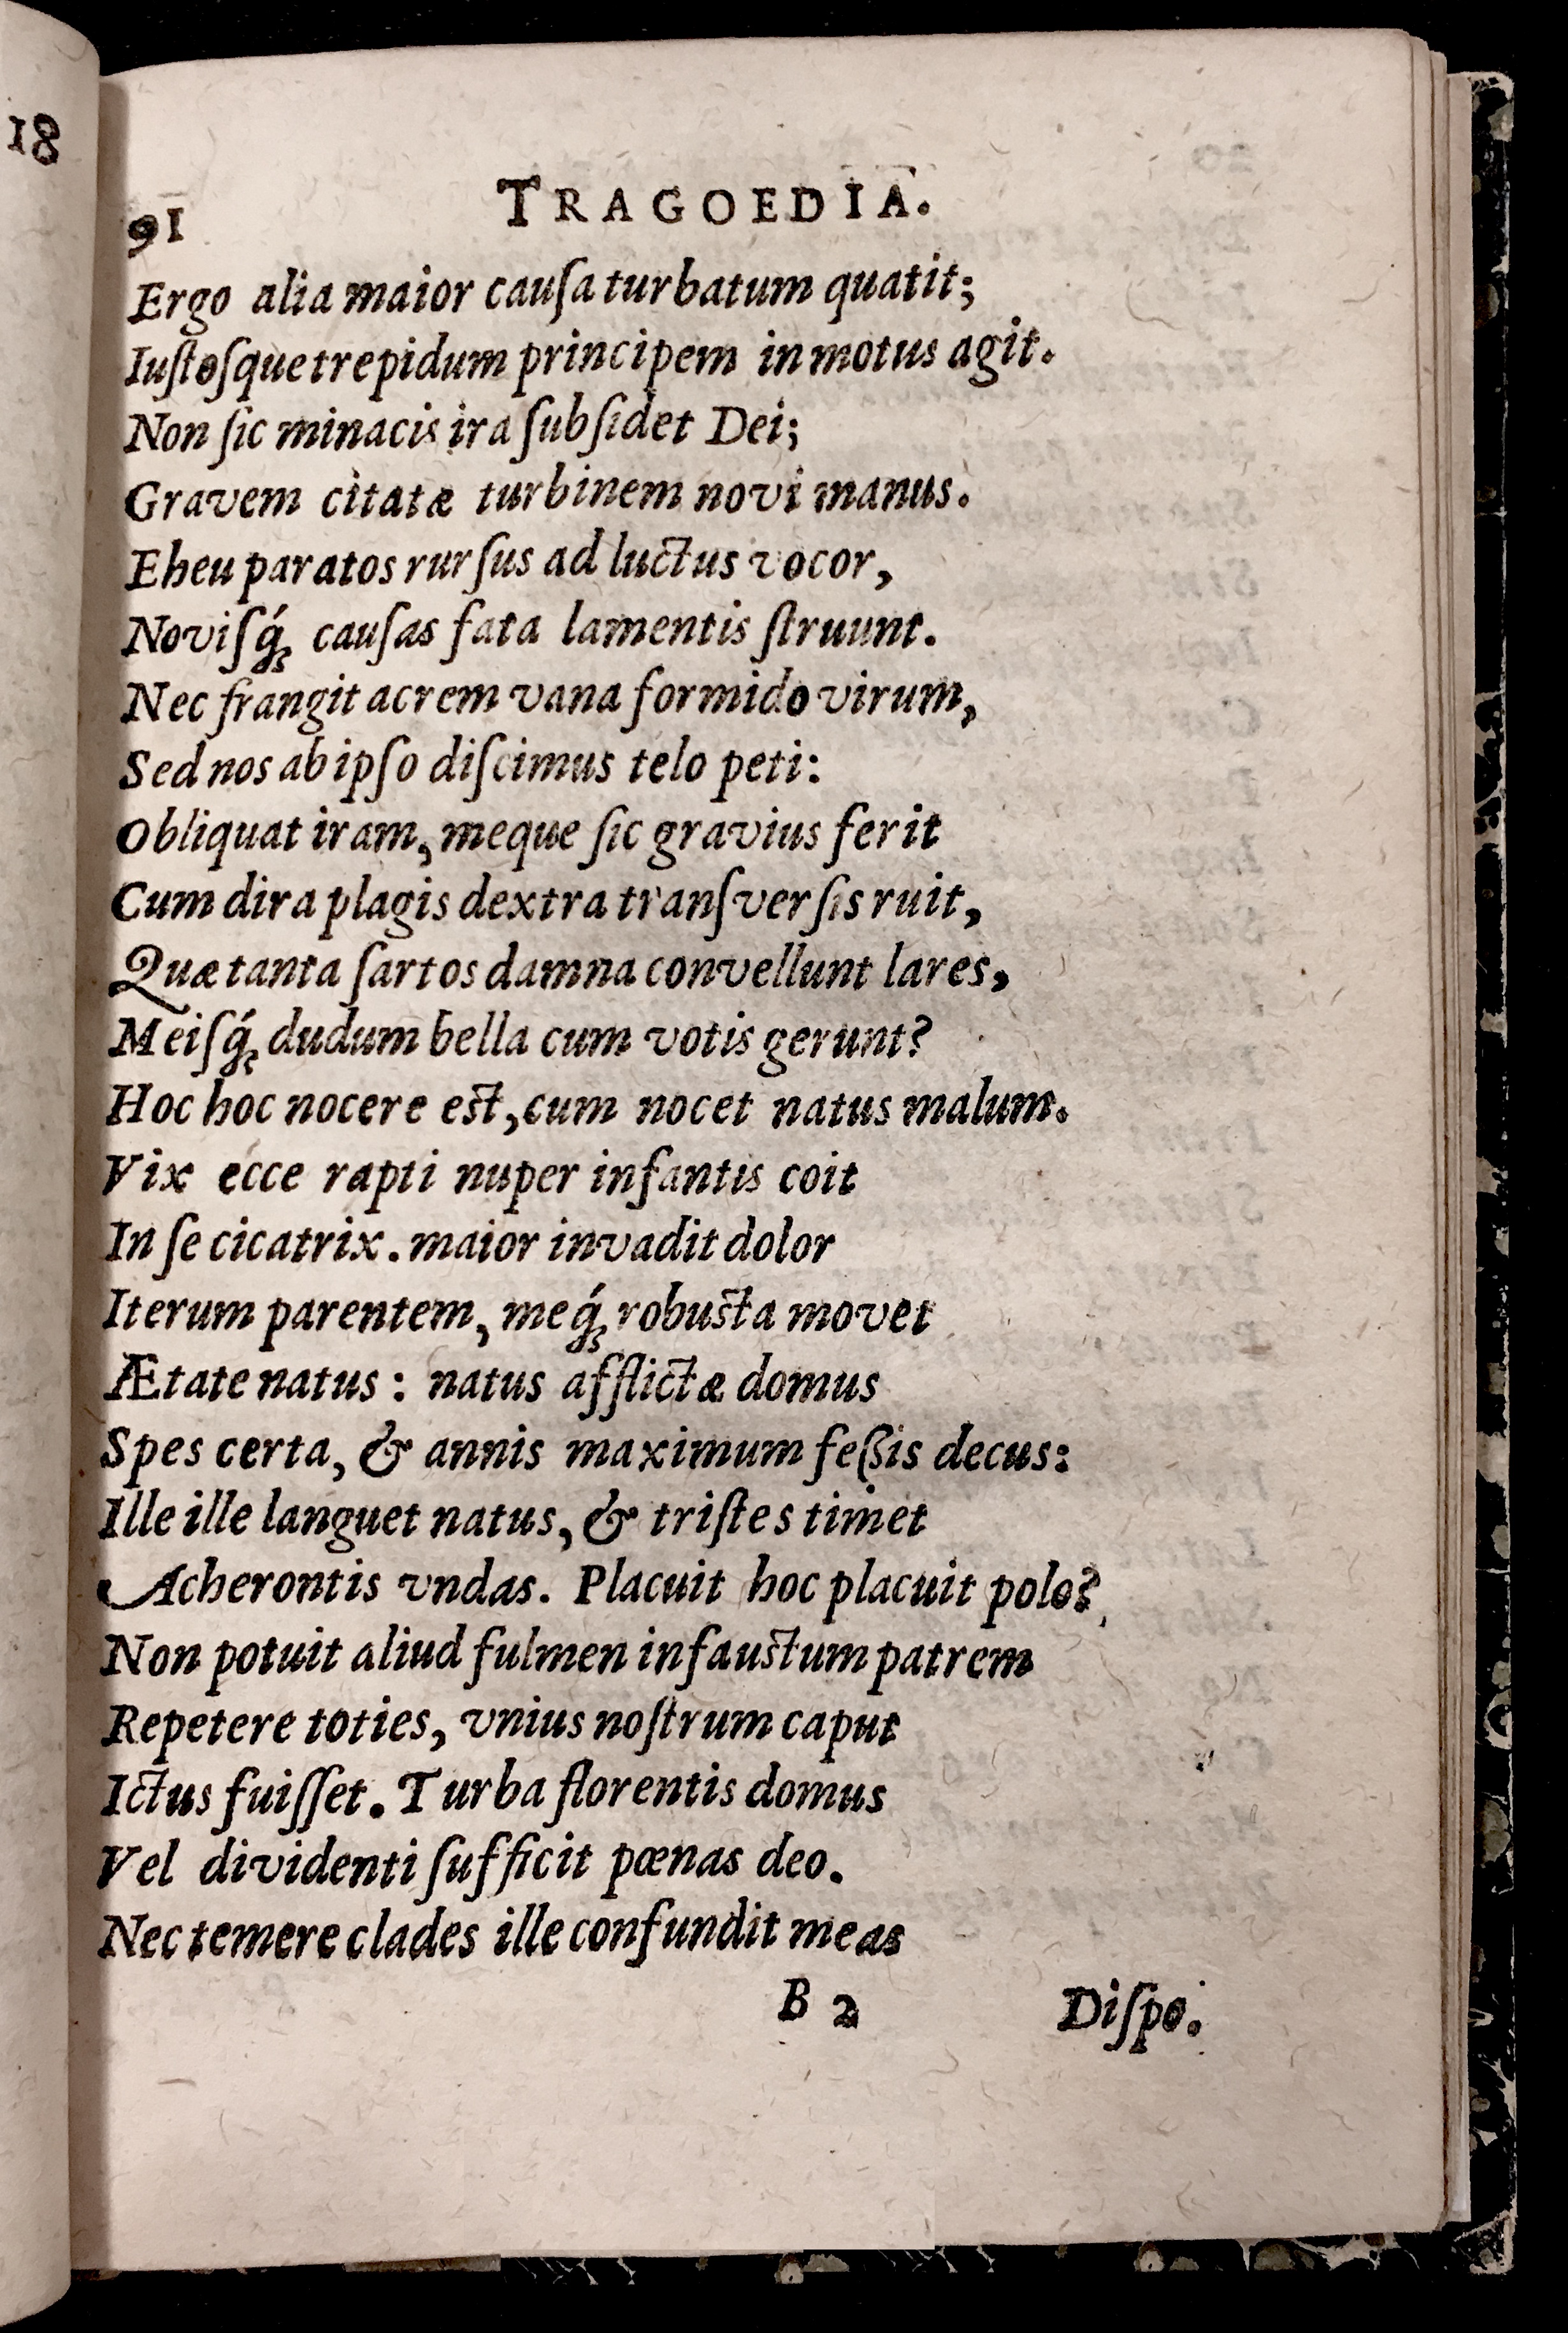 18
91 TRAGOEDIA.
Ergo alia maior cauſa turbatum quatit;
Iuſtoſque trepidum principem in motus agit.
Non ſic minacis ira ſubſidet Dei;
Gravem citatæ turbinem novi manus.
Eheu paratos rurſus ad luctus vocor,
Noviſq́; cauſas fata lamentis ſtruunt.
Nec frangit acrem vana formido virum,
Sed nos ab ipſo diſcimus telo peti:
Obliquat iram, meque ſic gravius ferit
Cum dira plagis dextra tranſverſis ruit,
Quæ tanta ſartos damna convellunt lares,
Meiſq́; dudum bella cum votis gerunt?
Hoc hoc nocere est, cum nocet natus malum.
Vix ecce rapti nuper infantis coit
In ſe cicatrix. maior invadit dolor
Iterum parentem, meq́; robusta movet
Ætate natus: natus afflictæ domus
Spes certa, & annis maximum feſsis decus:
Ille ille languet natus, & triſtes timet
Acherontis vndas. Placuit hoc placuit polo?
Non potuit aliud fulmen infaustum patrem
Repetere toties, vnius noſtrum caput
Ictus fuiſſet. Turba florentis domus
Vel dividenti ſufficit pœnas deo.
Nec temere clades ille confundit meas
B 2 Diſpo.